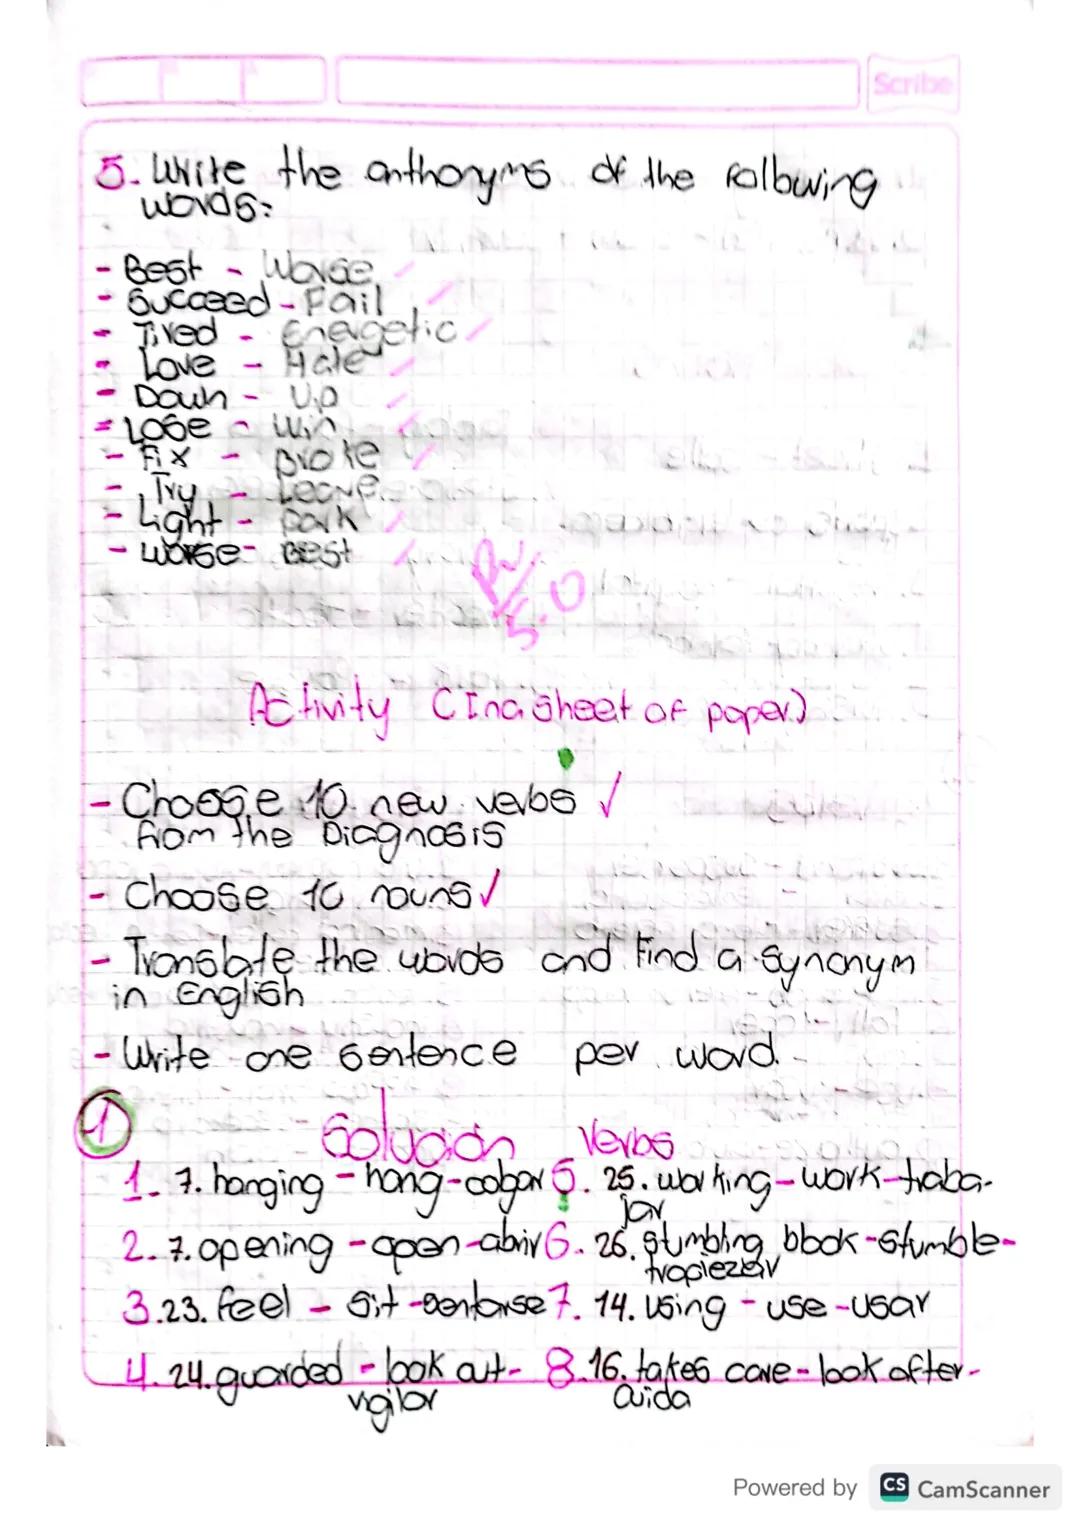 Scribe
5. Write the anthonyms of the following
words:
- Best - Worse
- Succeed - Fail
- Tired - Energetic
- Love - Hate
- Down - Up
- Lose - Win
- Fix - broke
- Try - Leave
- Light - Dark
- Worse - Best
5.0
Activity (In a sheet of paper)
- Choose 10 new verbs ✓
from the Diagnosis
- Choose 10 nouns ✓
- Translate the words and find a synonym
in English
- Write one sentence per word.
1 Solución Verbs
1. 7. hanging - hang - colgar
2. 7. opening - open - abrir
3. 23. feel - Sit - sentarse
4. 24. guarded - look out -
vigilar
5. 25. working - work - traba-
jar
6. 26. stumbling block - stumble -
tropiezar
7. 14. Using - use - usar
8. 16. takes care - look after -
cuida
Powered by CS CamScanner